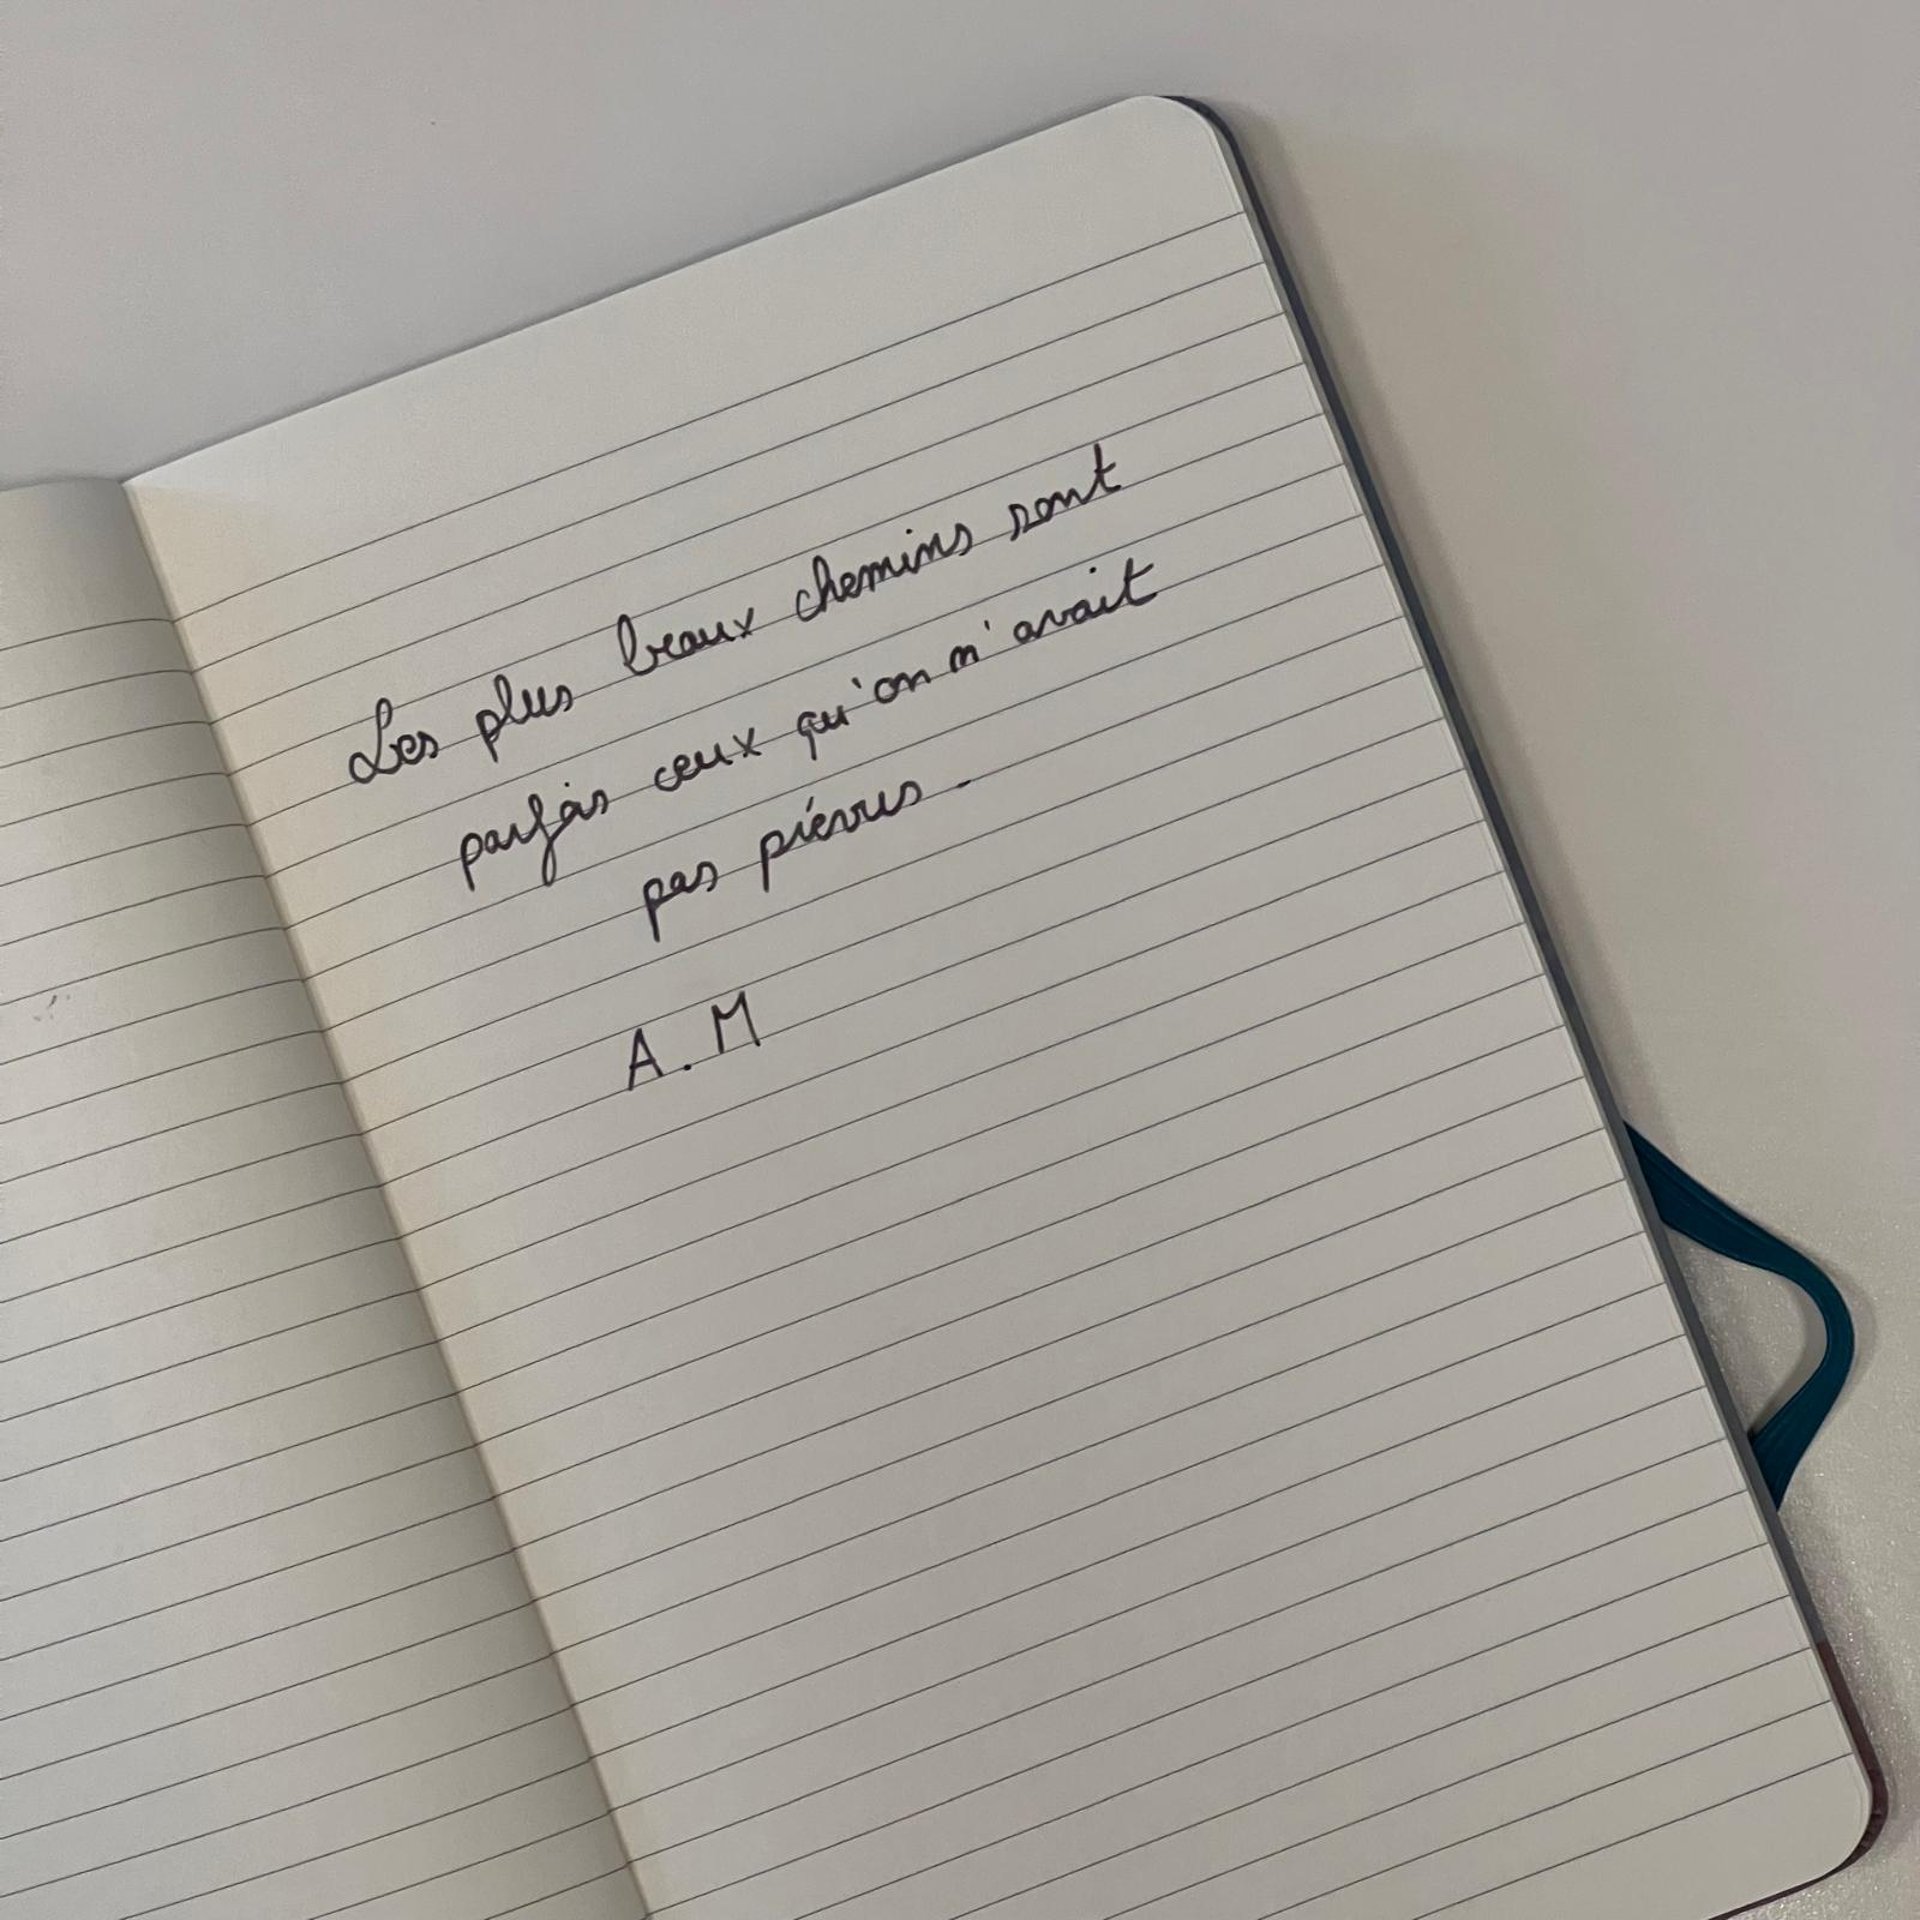 Les plus beaux chemins sont
parfois ceux qu'on n'avait
pas prévus.
A.M